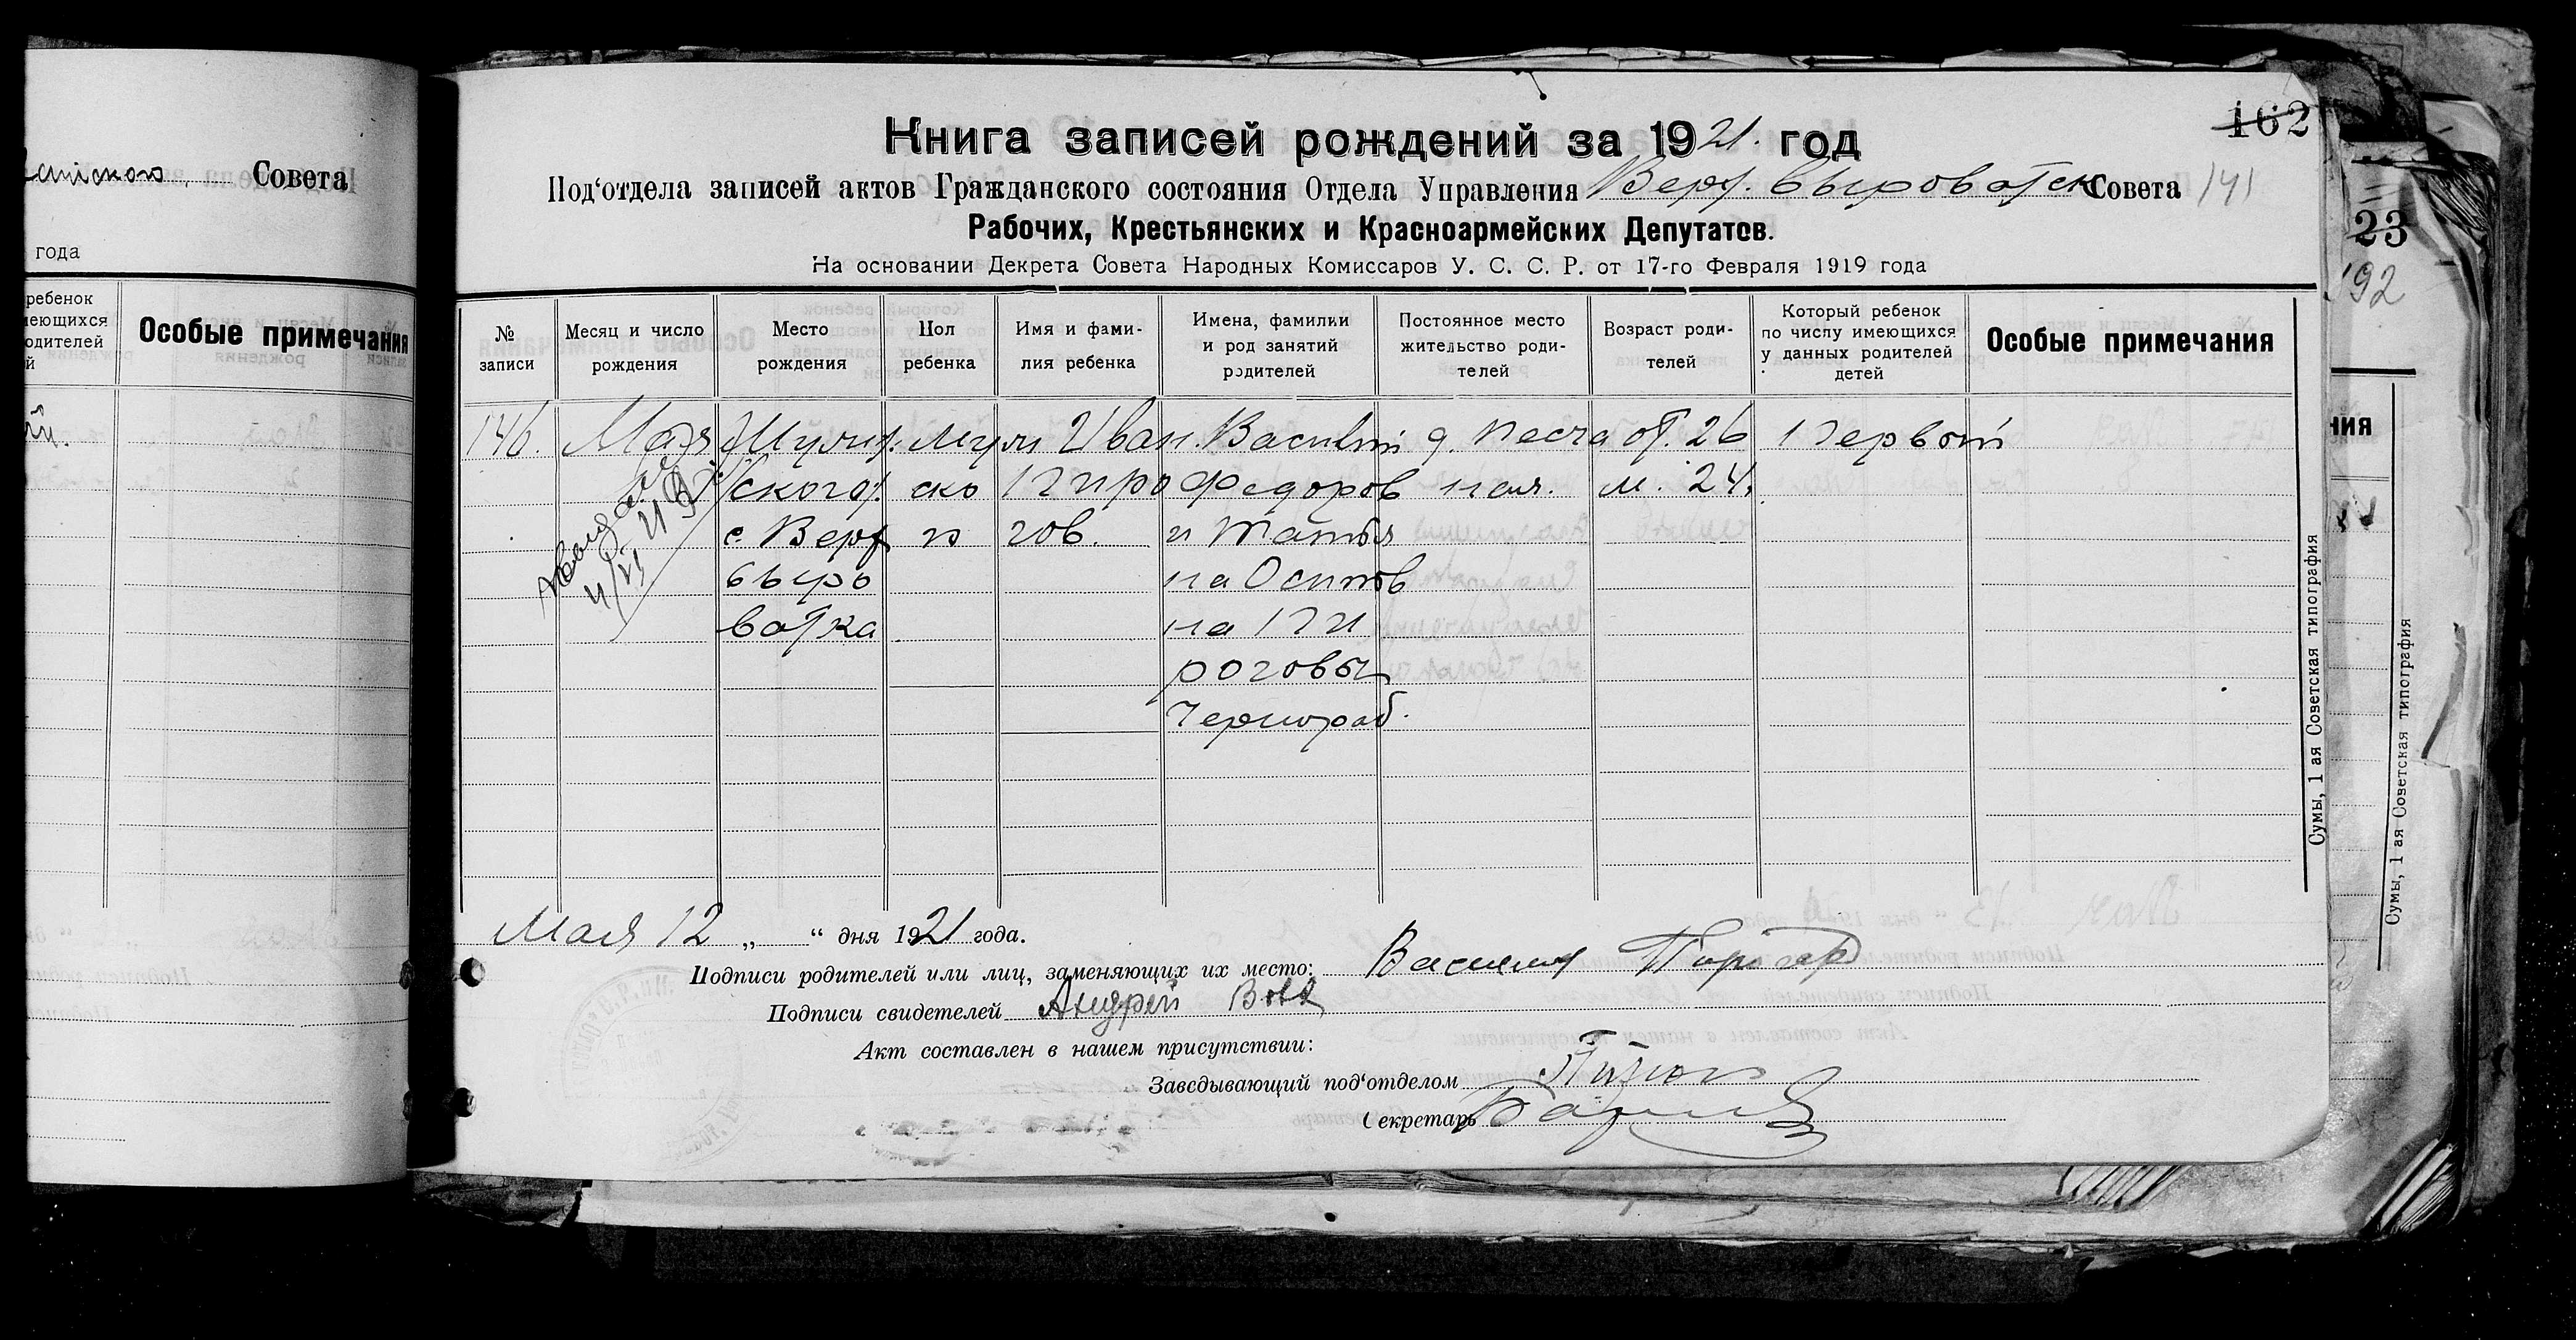 Совета
года
ребенок
имеющихся
родителей
й
Особые примечания
162
Книга записей рождений за 1921. год
Под‘отдела записей актов Гражданского состояния Отдела Управления Верх. Сыроватск Совета 141
Рабочих, Крестьянских и Красноармейских Депутатов.
На основании Декрета Совета Народных Комиссаров У. С. С. Р. от 17-го Февраля 1919 года
№ записи
Месяц и число рождения
Место рождения
Пол ребенка
Имя и фамилия ребенка
Имена, фамилии и род занятий родителей
Постоянное место жительство родителей
Возраст родителей
Который ребенок по числу имеющихся у данных родителей детей
Особые примечания
146. Мая
ского у.
с. Верх
сыро
ватка
муж
ско
й
Иван
Пиро
гов.
Василий
Федоров
и Татья
на Осипов
на Пи
роговы
Чернораб.
от. 26
м. 24.
1 первый
Мая 12 „ “ дня 1921 года.
Подписи родителей или лиц, заменяющих их место: Василий
Подписи свидетелей Андрей Вовк
Акт составлен в нашем присутствии:
Заведывающий под‘отделом
Секретарь
Сумы, 1 ая Советская типография
23
192
ния
Сумы, 1 ая Советская типография